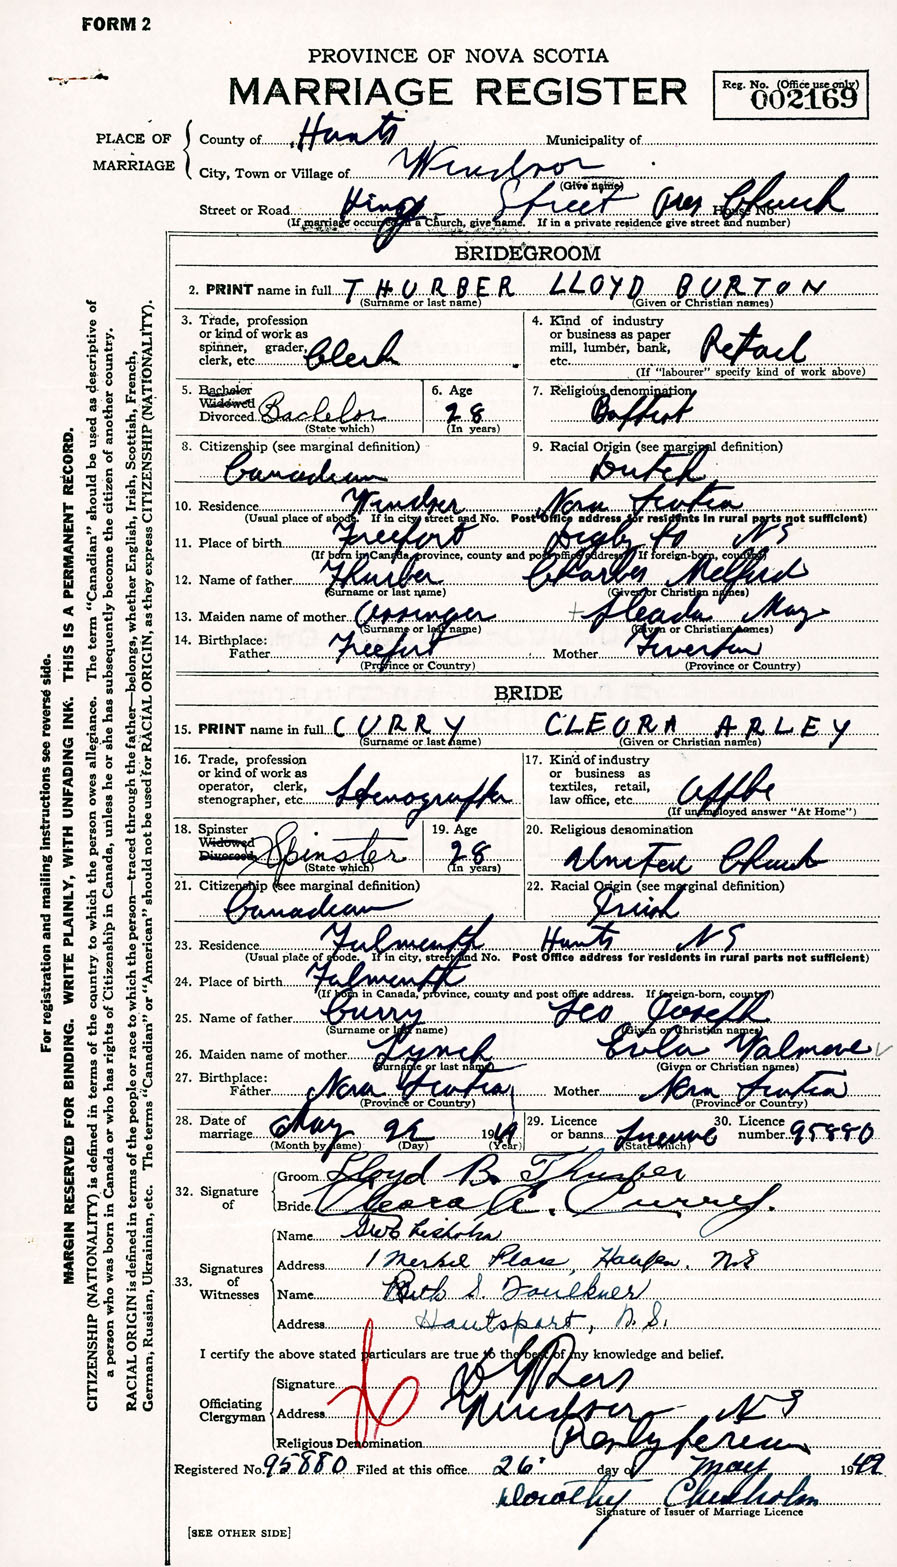 FORM 2
PROVINCE OF NOVA SCOTIA
MARRIAGE REGISTER
Reg. No. (Office use only)
002169
PLACE OF MARRIAGE
County of Hants Municipality of
City, Town or Village of Windsor
(Give name)
Street or Road King Street Pres Church House No.
(If marriage occurred in a Church, give name. If in a private residence give street and number)
BRIDEGROOM
2. PRINT name in full THURBER LLOYD BURTON
(Surname or last name) (Given or Christian names)
3. Trade, profession or kind of work as spinner, grader, clerk, etc. Clerk
4. Kind of industry or business as paper mill, lumber, bank, etc. Retail
(If "labourer" specify kind of work above)
5. Bachelor Widowed Divorced Bachelor
(State which)
6. Age 28
(In years)
7. Religious denomination Baptist
8. Citizenship (see marginal definition) Canadian
9. Racial Origin (see marginal definition) Dutch
10. Residence Windsor Nova Scotia
(Usual place of abode. If in city, street and No. Post Office address for residents in rural parts not sufficient)
11. Place of birth Freeport Digby Co NS
(If born in Canada, province, county and post office address. If foreign-born, country)
12. Name of father Thurber Charles Melford
(Surname or last name) (Given or Christian names)
13. Maiden name of mother Ossinger May
(Surname or last name) (Given or Christian names)
14. Birthplace:
Father Freeport Mother Tiverton
(Province or Country) (Province or Country)
BRIDE
15. PRINT name in full CURRY CLEORA ARLEY
(Surname or last name) (Given or Christian names)
16. Trade, profession or kind of work as operator, clerk, stenographer, etc. Stenographer
17. Kind of industry or business as textiles, retail, law office, etc. Office
(If unemployed answer "At Home")
18. Spinster Widowed Divorced Spinster
(State which)
19. Age 28
(In years)
20. Religious denomination United Church
21. Citizenship (see marginal definition) Canadian
22. Racial Origin (see marginal definition) Irish
23. Residence Falmouth Hants NS
(Usual place of abode. If in city, street and No. Post Office address for residents in rural parts not sufficient)
24. Place of birth Falmouth
(If born in Canada, province, county and post office address. If foreign-born, country)
25. Name of father Curry Leo Joseph
(Surname or last name) (Given or Christian names)
26. Maiden name of mother Lynch Eula
(Surname or last name) (Given or Christian names)
27. Birthplace:
Father Nova Scotia Mother Nova Scotia
(Province or Country) (Province or Country)
28. Date of marriage May 1949
(Month by name) (Day) (Year)
29. Licence or banns License
(State which)
30. Licence number 95880
32. Signature of
Groom Lloyd B. Thurber
Bride Cleora A. Curry.
33. Signatures of Witnesses
Name Chisholm
Address 1 Place, N.S
Name Ruth S. Faulkner
Address Hantsport, N.S.
I certify the above stated particulars are true to the best of my knowledge and belief.
Officiating Clergyman
Signature
Address Windsor NS
Religious Denomination Presbyterian
Registered No. 95880 Filed at this office 26 day of May 1949
Dorothy Chisholm
Signature of Issuer of Marriage Licence
[SEE OTHER SIDE]
For registration and mailing instructions see reverse side.
MARGIN RESERVED FOR BINDING. WRITE PLAINLY, WITH UNFADING INK. THIS IS A PERMANENT RECORD.
CITIZENSHIP (NATIONALITY) is defined in terms of the country to which the person owes allegiance. The term "Canadian" should be used as descriptive of
a person who was born in Canada or who has rights of Citizenship in Canada, unless he or she has subsequently become the citizen of another country.
RACIAL ORIGIN is defined in terms of the people or race to which the person—traced through the father—belongs, whether English, Irish, Scottish, French,
German, Russian, Ukrainian, etc. The terms "Canadian" or "American" should not be used for RACIAL ORIGIN, as they express CITIZENSHIP (NATIONALITY).